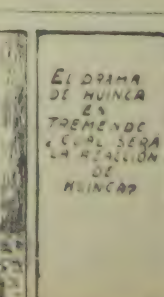 EL DRAMA
DE HUINCA
ES
TREMENDO
¿CUAL SERA
LA REACCION
DE
HUINCA?